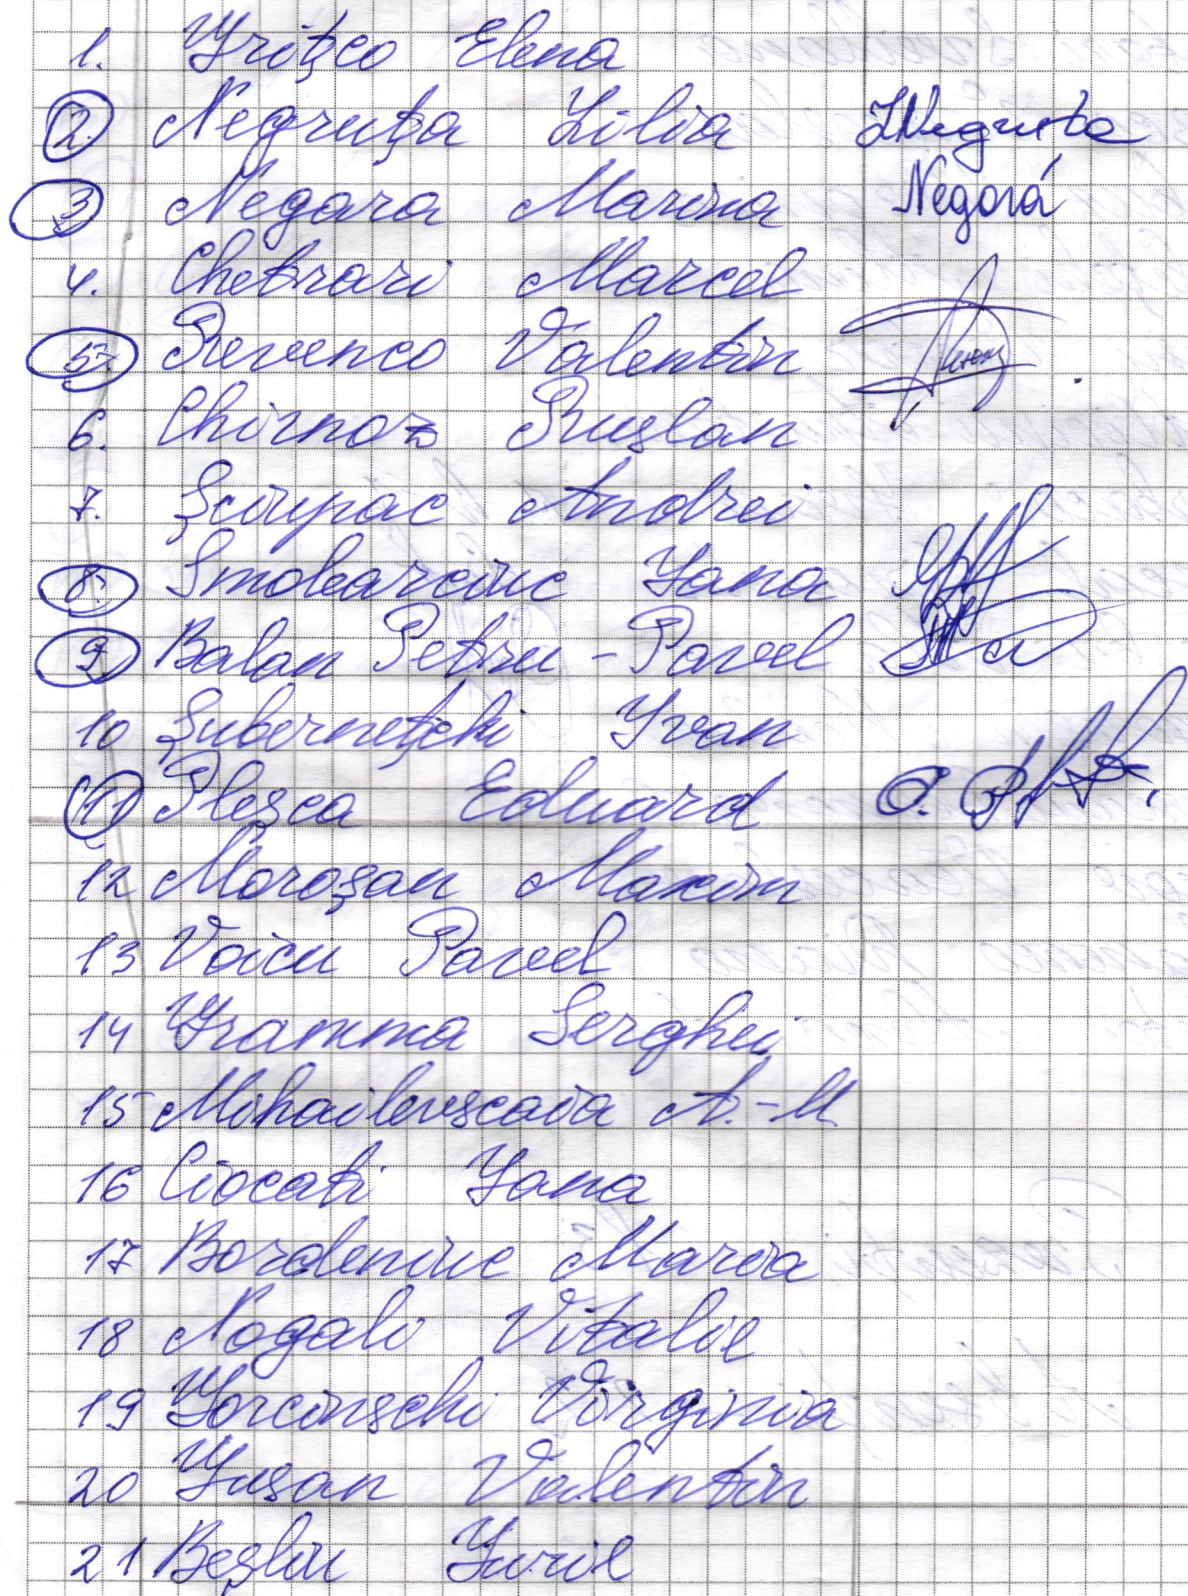 1. Grițco Elena
2. Negruța Lilia LNegruta
3 Negara Marina Negará
4. Chetrari Marcel
5. Revenco Valentin
6. Chirnoz Ruslan
7. Șciupac Andrei
8. Smolearciuc Iana
9 Balan Petru - Pavel
10 Șubernețchi Ivan
11 Pleșca Eduard
12 Moroșan Maxim
13 Voicu Pavel
14 Gramma Serghei
15 Mihailevscaia A.-M
16 Ciocati Iana
17 Bordeniuc Maria
18 Nogali Vitalie
19 Gorcinschi Virginia
20 Gușan Valentin
21 Beșliu Iurie